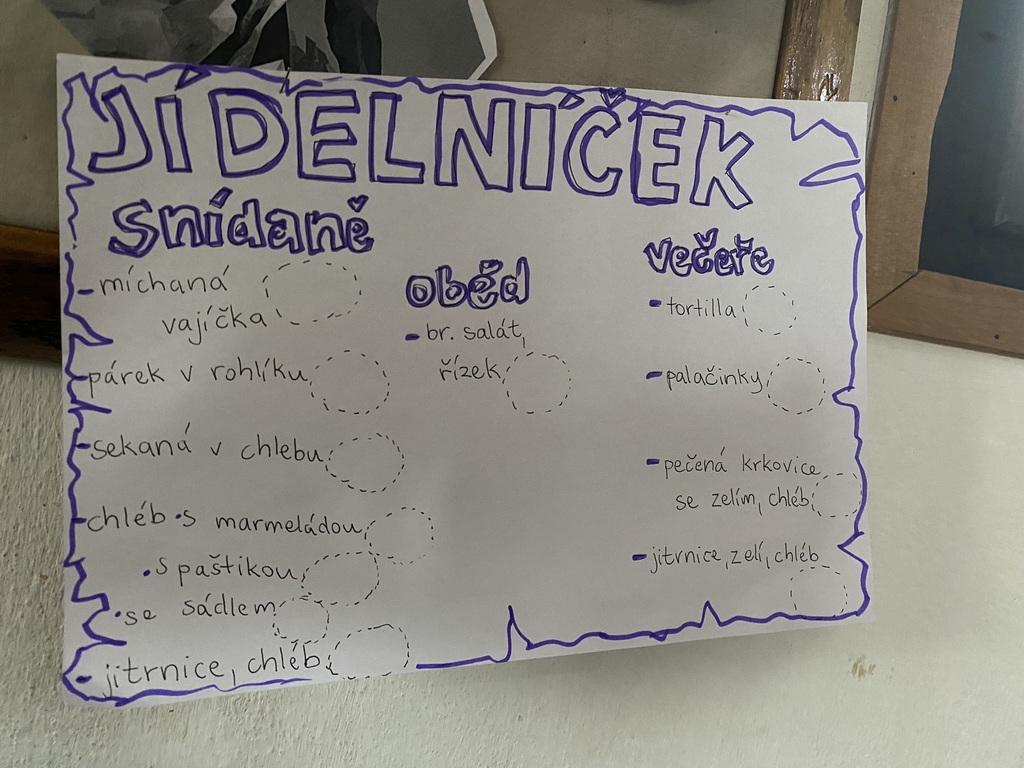 JÍDELNÍČEK
Snídaně
- míchaná
vajíčka
- párek v rohlíku
- sekaná v chlebu
- chléb • s marmeládou
• s paštikou
• se sádlem
- jitrnice, chléb
oběd
- br. salát,
řízek
večeře
- tortilla
- palačinky
- pečená krkovice
se zelím, chléb
- jitrnice, zelí, chléb